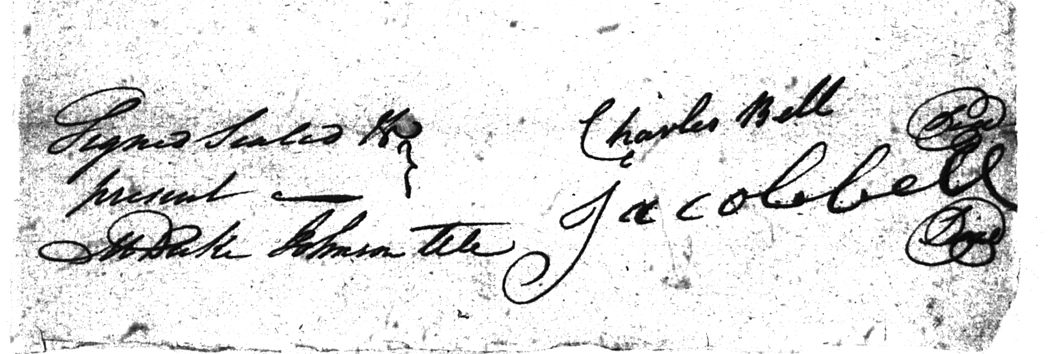 Signed Sealed &c
present —
Johnson
Charles Bell
Jacob bell